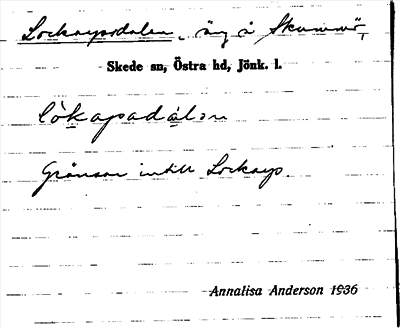 Lockarpsdalen, äng å Skummö,
Skede sn, Östra hd, Jönk. l.
lòkapadàlən
Gränsar intill Lockarp.
Annalisa Anderson 1936